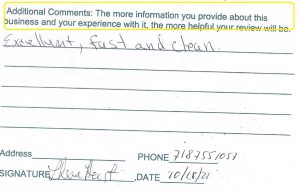 Additional Comments: The more information you provide about this
business and your experience with it, the more helpful your review will be.
Excellent, fast and clean.
Address
PHONE 7187551053
SIGNATURE
,DATE 10/15/21